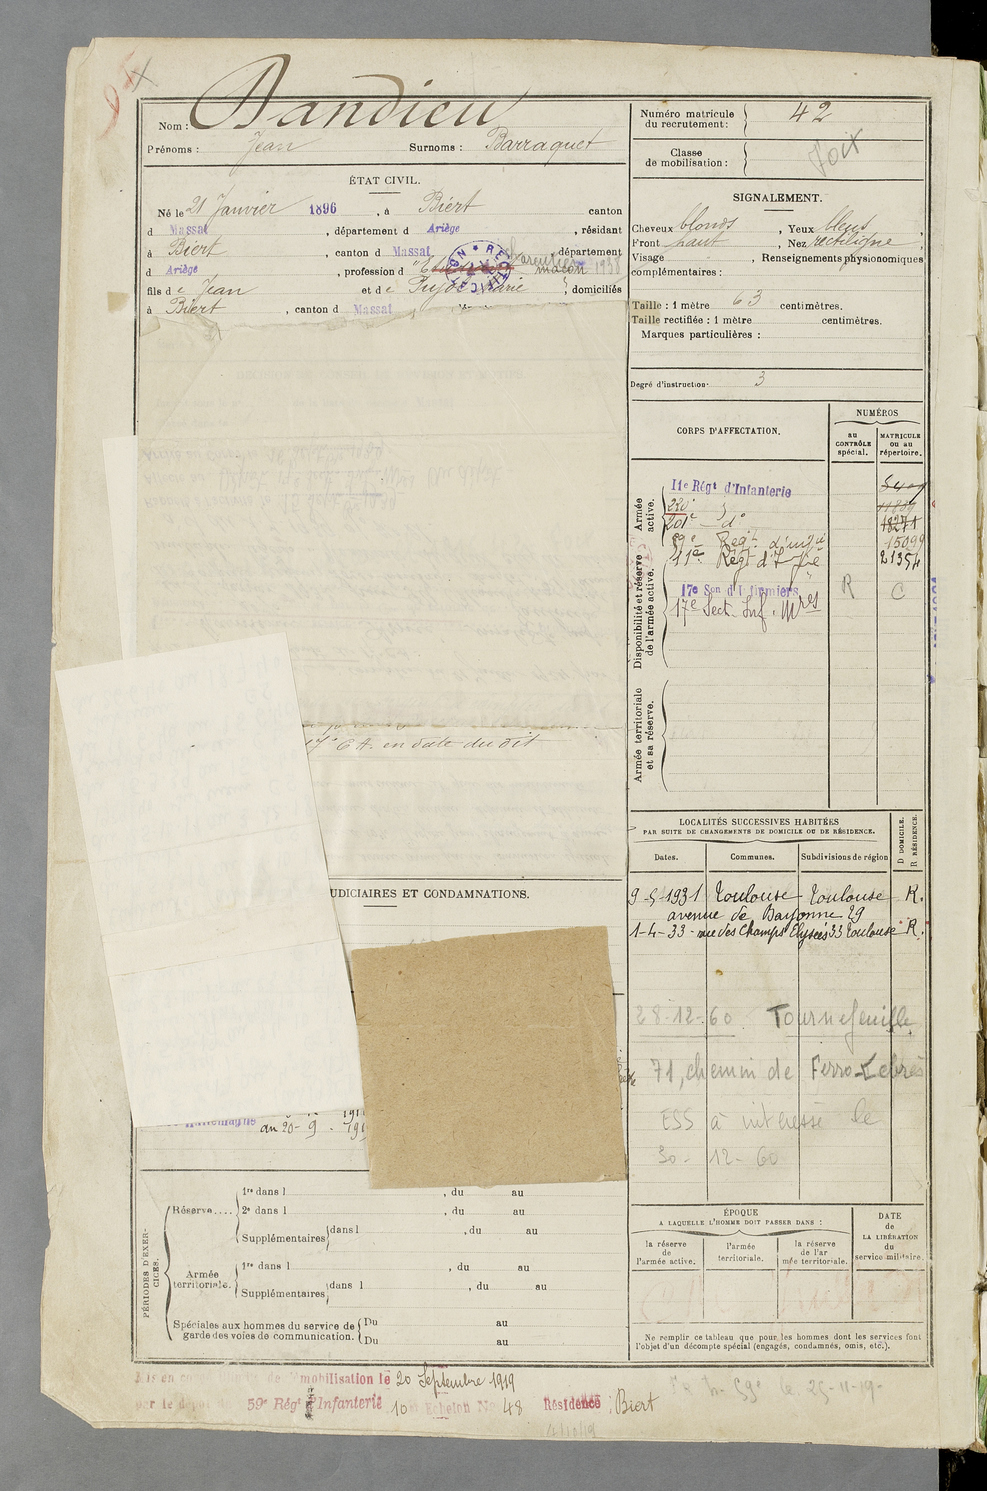 Nom : Dandieu
Prénoms : Jean Surnoms : Barraquet
ÉTAT CIVIL.
Né le 21 Janvier 1896, à Biert canton
d Massat, département d Ariège, résidant
à Biert, canton d Massat, département
d Ariège, profession d maçon 1938
fils de Jean et de Pujol Marie } domiciliés
à Biert, canton d Massat
17e C.A. en date du dit
UDICIAIRES ET CONDAMNATIONS.
au 20-9-191
PÉRIODES D'EXER-
CICES.
Réserve....
1re dans l , du au
2e dans l , du au
Supplémentaires dans l , du au
Armée
territoriale.
1re dans l , du au
Supplémentaires dans l , du au
Spéciales aux hommes du service de
garde des voies de communication.
Du au
Du au
mobilisation le 20 Septembre 1919
59e Régt d'Infanterie 10 Echelon No 48 Résidence : Biert
Numéro matricule
du recrutement : 42
Classe
de mobilisation :
Foix
SIGNALEMENT.
Cheveux blonds, Yeux bleus
Front haut, Nez rectiligne
Visage , Renseignements physionomiques
complémentaires :
Taille : 1 mètre 63 centimètres.
Taille rectifiée : 1 mètre centimètres.
Marques particulières :
Degré d'instruction 3
CORPS D'AFFECTATION.
NUMÉROS
au
CONTRÔLE
spécial.
MATRICULE
ou au
répertoire.
Armée
active.
11e Régt d'Infanterie
220e
201e - do 18271
59e Regt d'Infie 15099
11e Régt d'Infie 21354
Disponibilité et réserve
de l'armée active.
17e Son d'Infirmiers R C
17e Sect. Inf. Mres
Armée territoriale
et sa réserve.
LOCALITÉS SUCCESSIVES HABITÉES
PAR SUITE DE CHANGEMENTS DE DOMICILE OU DE RÉSIDENCE.
D DOMICILE.
R RÉSIDENCE.
Dates. Communes. Subdivisions de région
9-5-1931 Toulouse Toulouse R.
avenue de Bayonne 29
1-4-33 - rue des Champs Elysées 33 Toulouse R.
28-12-60 Tournefeuille
71, chemin de Ferro-Lebrès
ESS à intéressé le
30-12-60
ÉPOQUE
A LAQUELLE L'HOMME DOIT PASSER DANS :
la réserve
de
l'armée active.
l'armée
territoriale.
la réserve
de l'ar
mée territoriale.
DATE
de
LA LIBÉRATION
du
service militaire.
Ne remplir ce tableau que pour les hommes dont les services font
l'objet d'un décompte spécial (engagés, condamnés, omis, etc.).
le 25-11-19-